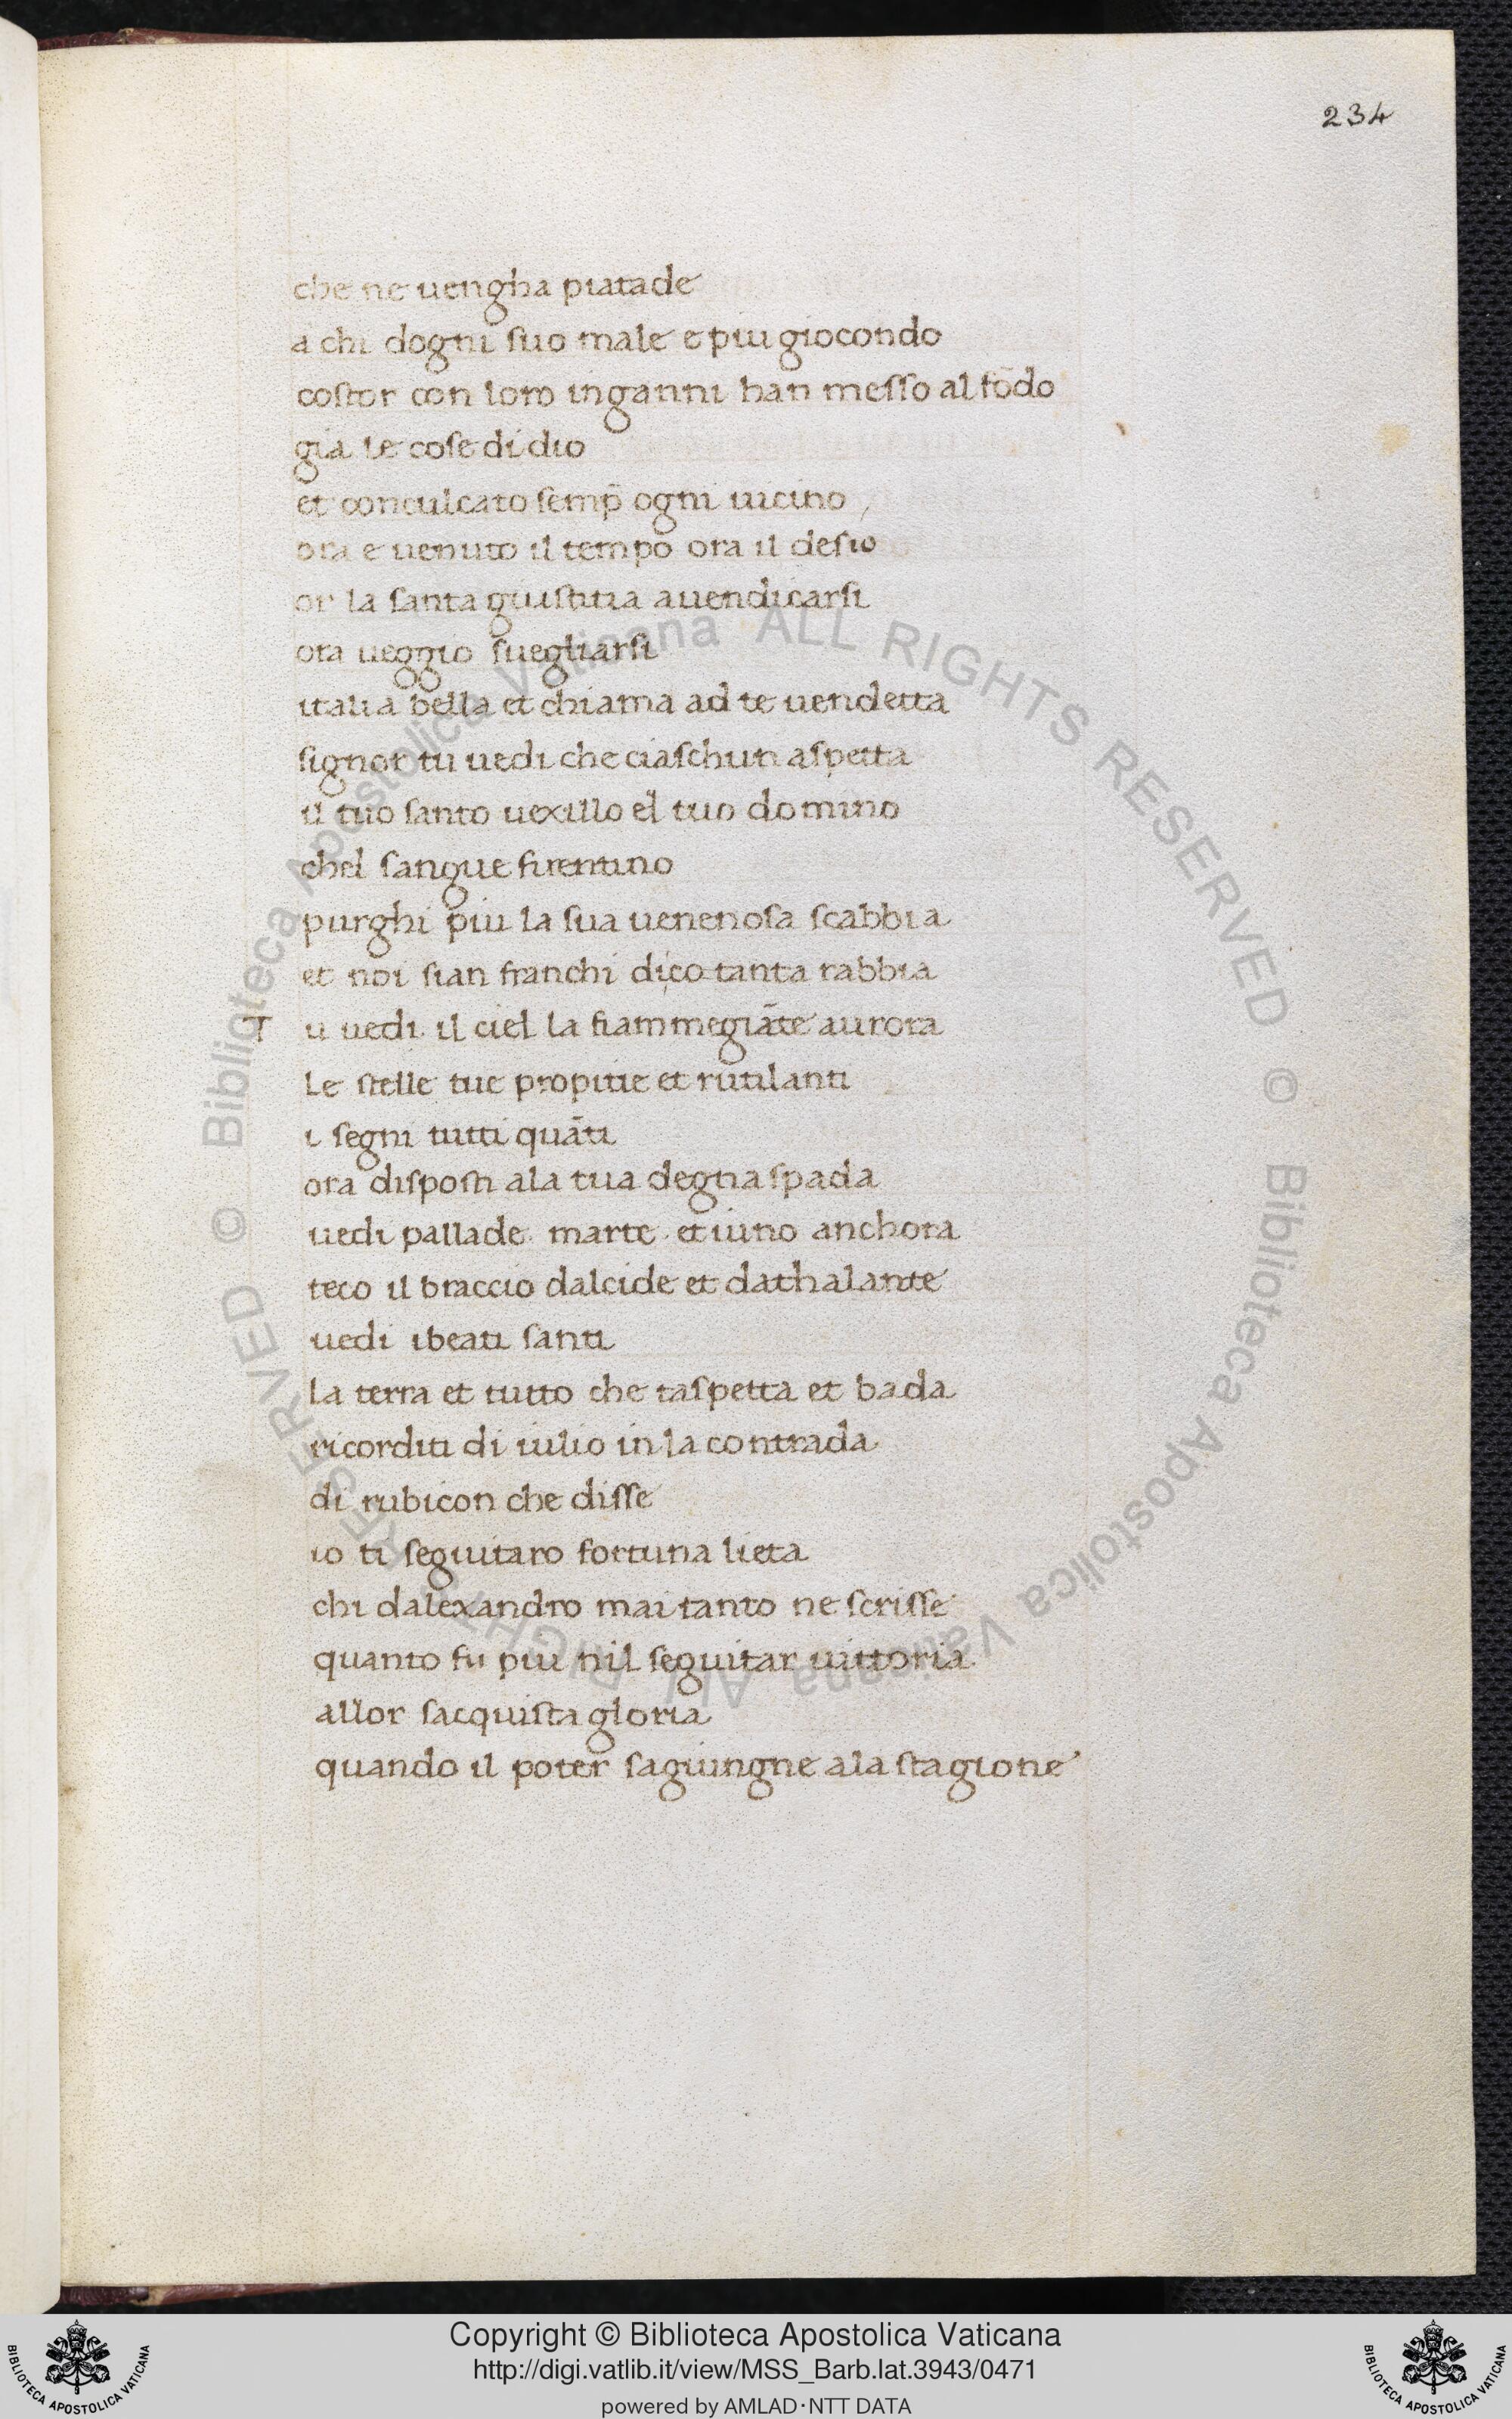 234
che ne uengha piatade
a chi dogni suo male e piu giocondo
costor con loro inganni han messo al fōdo
gia le cose di dio
et conculcato semp̄ ogni uicino
ora e uenuto il tempo ora il desio
or la santa giustitia auendicarsi
ora ueggio suegliarsi
italia bella et chiama ad te uendetta
signor tu uedi che ciaschun aspetta
il tuo santo uexillo el tuo domino
chel sangue firentino
purghi piu la sua uenenosa scabbia
et noi sian franchi di co tanta rabbia
Tu uedi il ciel la fiammegiāte aurora
le stelle tue propitie et rutilanti
i segni tutti quāti
ora disposti ala tua degna spada
uedi pallade. marte. et iuno anchora
teco il braccio dalcide et dathalante
uedi ibeati santi
la terra et tutto che taspetta et bada
ricorditi di iulio in la contrada
di rubicon che disse
io ti seguitaro fortuna lieta
chi dalexandro mai tanto ne scrisse
quanto fu piu nil seguitar uittoria
allor sacquista gloria
quando il poter sagiungne ala stagione
Copyright © Biblioteca Apostolica Vaticana
http://digi.vatlib.it/view/MSS_Barb.lat.3943/0471
powered by AMLAD·NTT DATA
BIBLIOTECA APOSTOLICA VATICANA
BIBLIOTECA APOSTOLICA VATICANA
© Biblioteca Apostolica Vaticana ALL RIGHTS RESERVED
© Biblioteca Apostolica Vaticana ALL RIGHTS RESERVED